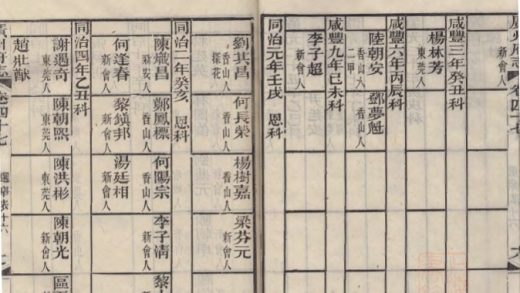 廣州府志 卷四十七
咸豐三年癸丑科
楊林芳 新會人
咸豐六年丙辰科
陸朝安 香山人 二甲
鄧夢魁 香山人
咸豐九年己未科
李子超
同治元年壬戌 恩科
劉其昌 香山人 探花
何長榮 香山人
楊樹嘉 香山人
梁芬元 新會人
同治二年癸亥 恩科
陳熾昌 新安人
鄭鳳標 香山人
何陽宗 香山人
李子清 新會人
黎
何逢春 新會人
黎鎮邦 新會人
湯廷相 新會人
同治四年乙丑科
謝遇奇 東莞人
陳朝熙 東莞人
陳洪彬 東莞人
陳朝光 新會人
區
趙
廣州府志 卷四十七 選舉表十六